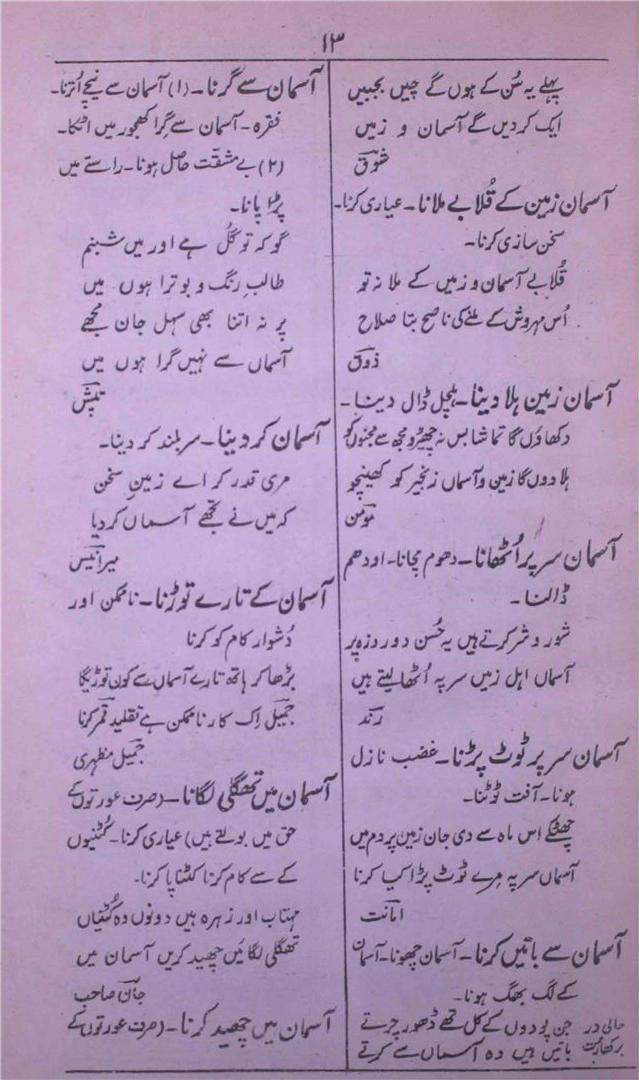 ۱۳
پہلے یہ سُن کے ہوں گے چیں بجبیں
ایک کردیں گے آسمان و زمیں
شوقؔ
آسمان زمین کے قُلابے ملانا۔ عیاری کرنا۔
سخن سازی کرنا۔
قُلابے آسمان و زمیں کے ملا نہ تو
اُس مہروش کے ملنے کی ناصح بتا صلاح
ذوقؔ
آسمان زمین ہلا دینا۔ ہلچل ڈال دینا۔
دکھاؤں گا تماشا بس نہ چھیڑو مجھ سے مجنوں کو
ہلا دوں گا زمین و آسماں زنجیر کو کھینچو
مومنؔ
آسمان سر پر اُٹھانا۔ دھوم مچانا۔ اودھم
ڈالنا۔
شور و شر کرتے ہیں یہ حُسن دو روزہ پر
آسماں اہل زمیں سر پہ اُٹھا لیتے ہیں
رندؔ
آسمان سر پر ٹوٹ پڑنا۔ غضب نازل
ہونا۔ آفت ٹوٹنا۔
چھٹکے اس ماہ سے دی جان زمیں پر دم میں
آسماں سر پہ مرے ٹوٹ پڑا کیا کرنا
امانتؔ
آسمان سے باتیں کرنا۔ آسمان چھونا۔ آسمان
کے لگ بھگ ہونا۔
حالی در جن پودوں کے کل تھے ڈھور چرتے
برکھارت باتیں ہیں وہ آسماں سے کرتے
آسمان سے گرنا۔ (۱) آسمان سے نیچے اُترنا۔
فقرہ۔ آسمان سے گرا کھجور میں اٹکا۔
(۲) بے مشقت حاصل ہونا۔ راستے میں
پڑا پانا۔
گو کہ تو گُل ہے اور میں شبنم
طالبِ رنگ و بو ترا ہوں میں
پر نہ اتنا بھی سہل جان مجھے
آسماں سے نہیں گرا ہوں میں
تپشؔ
آسمان کر دینا۔ سربلند کر دینا۔
مری قدر کر اے زمینِ سخن
کہ میں نے تجھے آسماں کر دیا
میر انیسؔ
آسمان کے تارے توڑنا۔ ناممکن اور
دُشوار کام کو کرنا
بڑھا کر ہاتھ تارے آسماں سے کون توڑیگا
جمیلؔ اِک کار ناممکن ہے تقلید قمر کرنا
جمیلؔ مظہری
آسمان میں تھگلی لگانا۔ (صرف عورتوں کے
حق میں بولتے ہیں) عیاری کرنا۔ کُٹنیوں
کے سے کام کرنا کٹناپا کرنا۔
مہتاب اور زہرہ ہیں دونوں وہ کُٹنیاں
تھگلی لگائیں چھید کریں آسمان میں
جانؔ صاحب
آسمان میں چھید کرنا۔ (صرف عورتوں کے